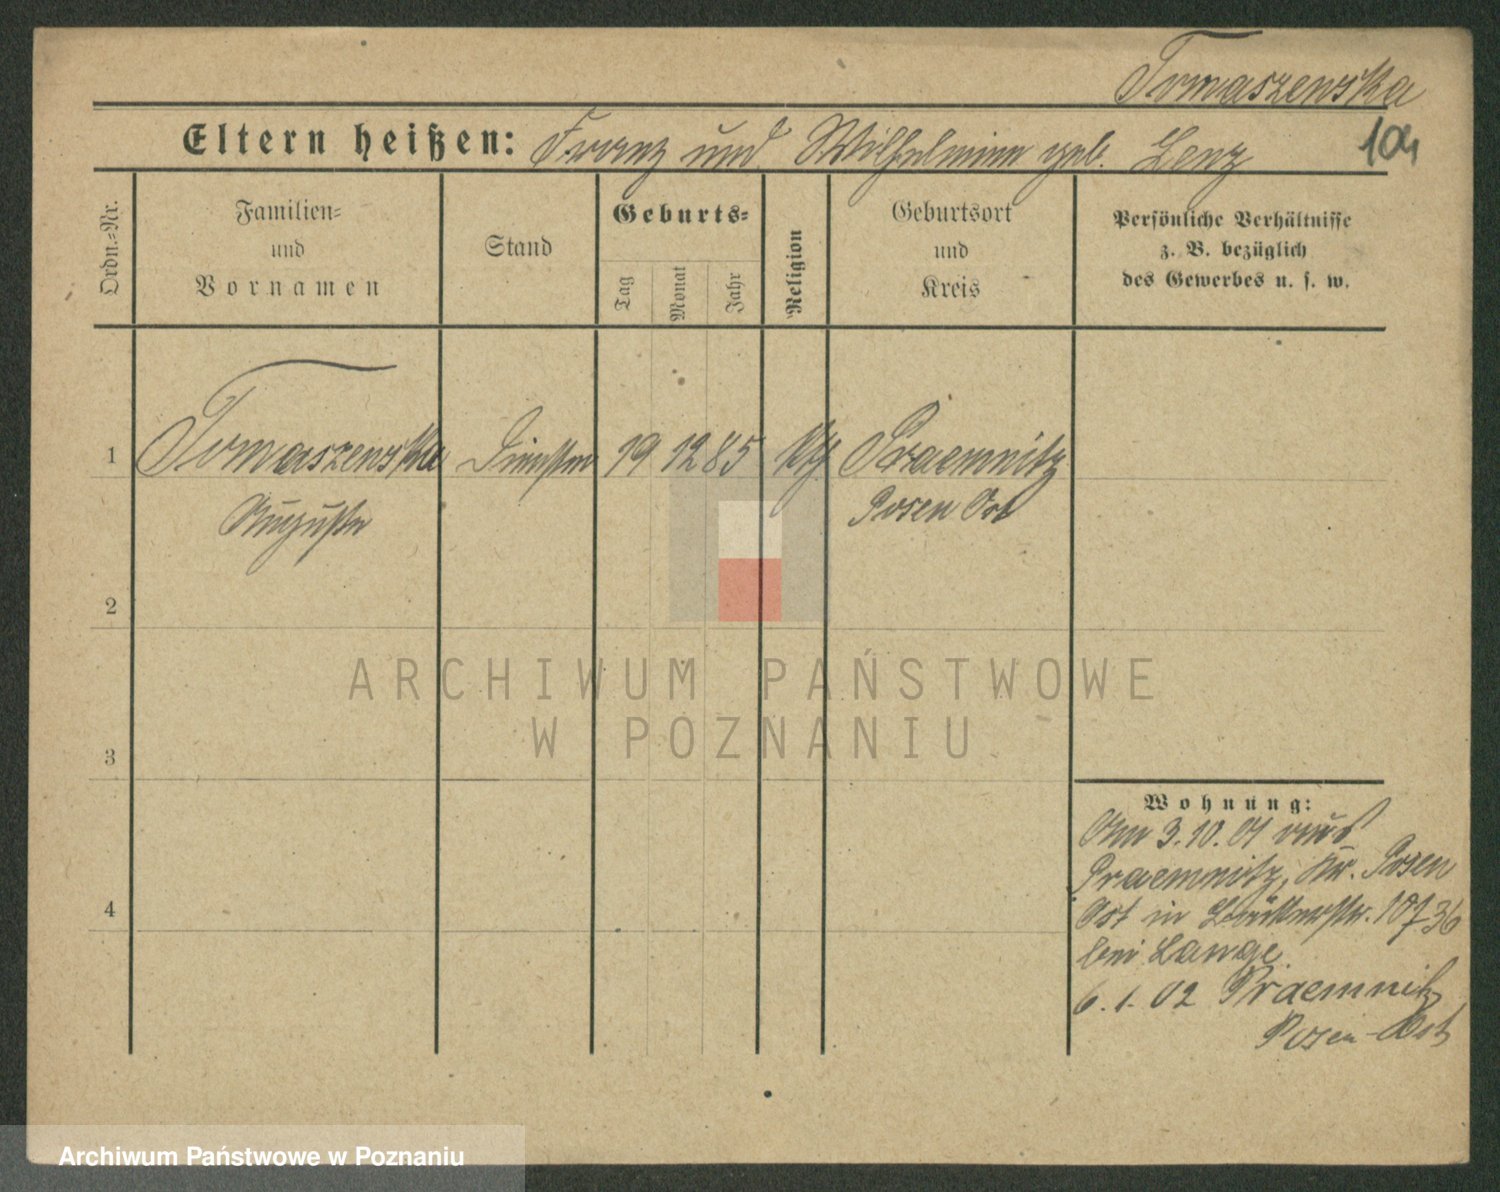 Tomaszewska
Eltern heißen: Franz und Wilhelmine geb. Lenz
104
Ordn.-Nr.
Familien-
und
Vornamen
Stand
Geburts-
Tag
Monat
Jahr
Religion
Geburtsort
und
Kreis
Persönliche Verhältnisse
z. B. bezüglich
des Gewerbes u. s. w.
1 Tomaszewska 19 12 85 kth Praemnitz
Auguste Posen Ost
2
3
4
Wohnung:
Am 3.10.01 aus
Praemnitz, Kr. Posen
Ost in
bei Lange
6.1.02 Praemnitz
Posen-Ost
ARCHIWUM PAŃSTWOWE
W POZNANIU
Archiwum Państwowe w Poznaniu